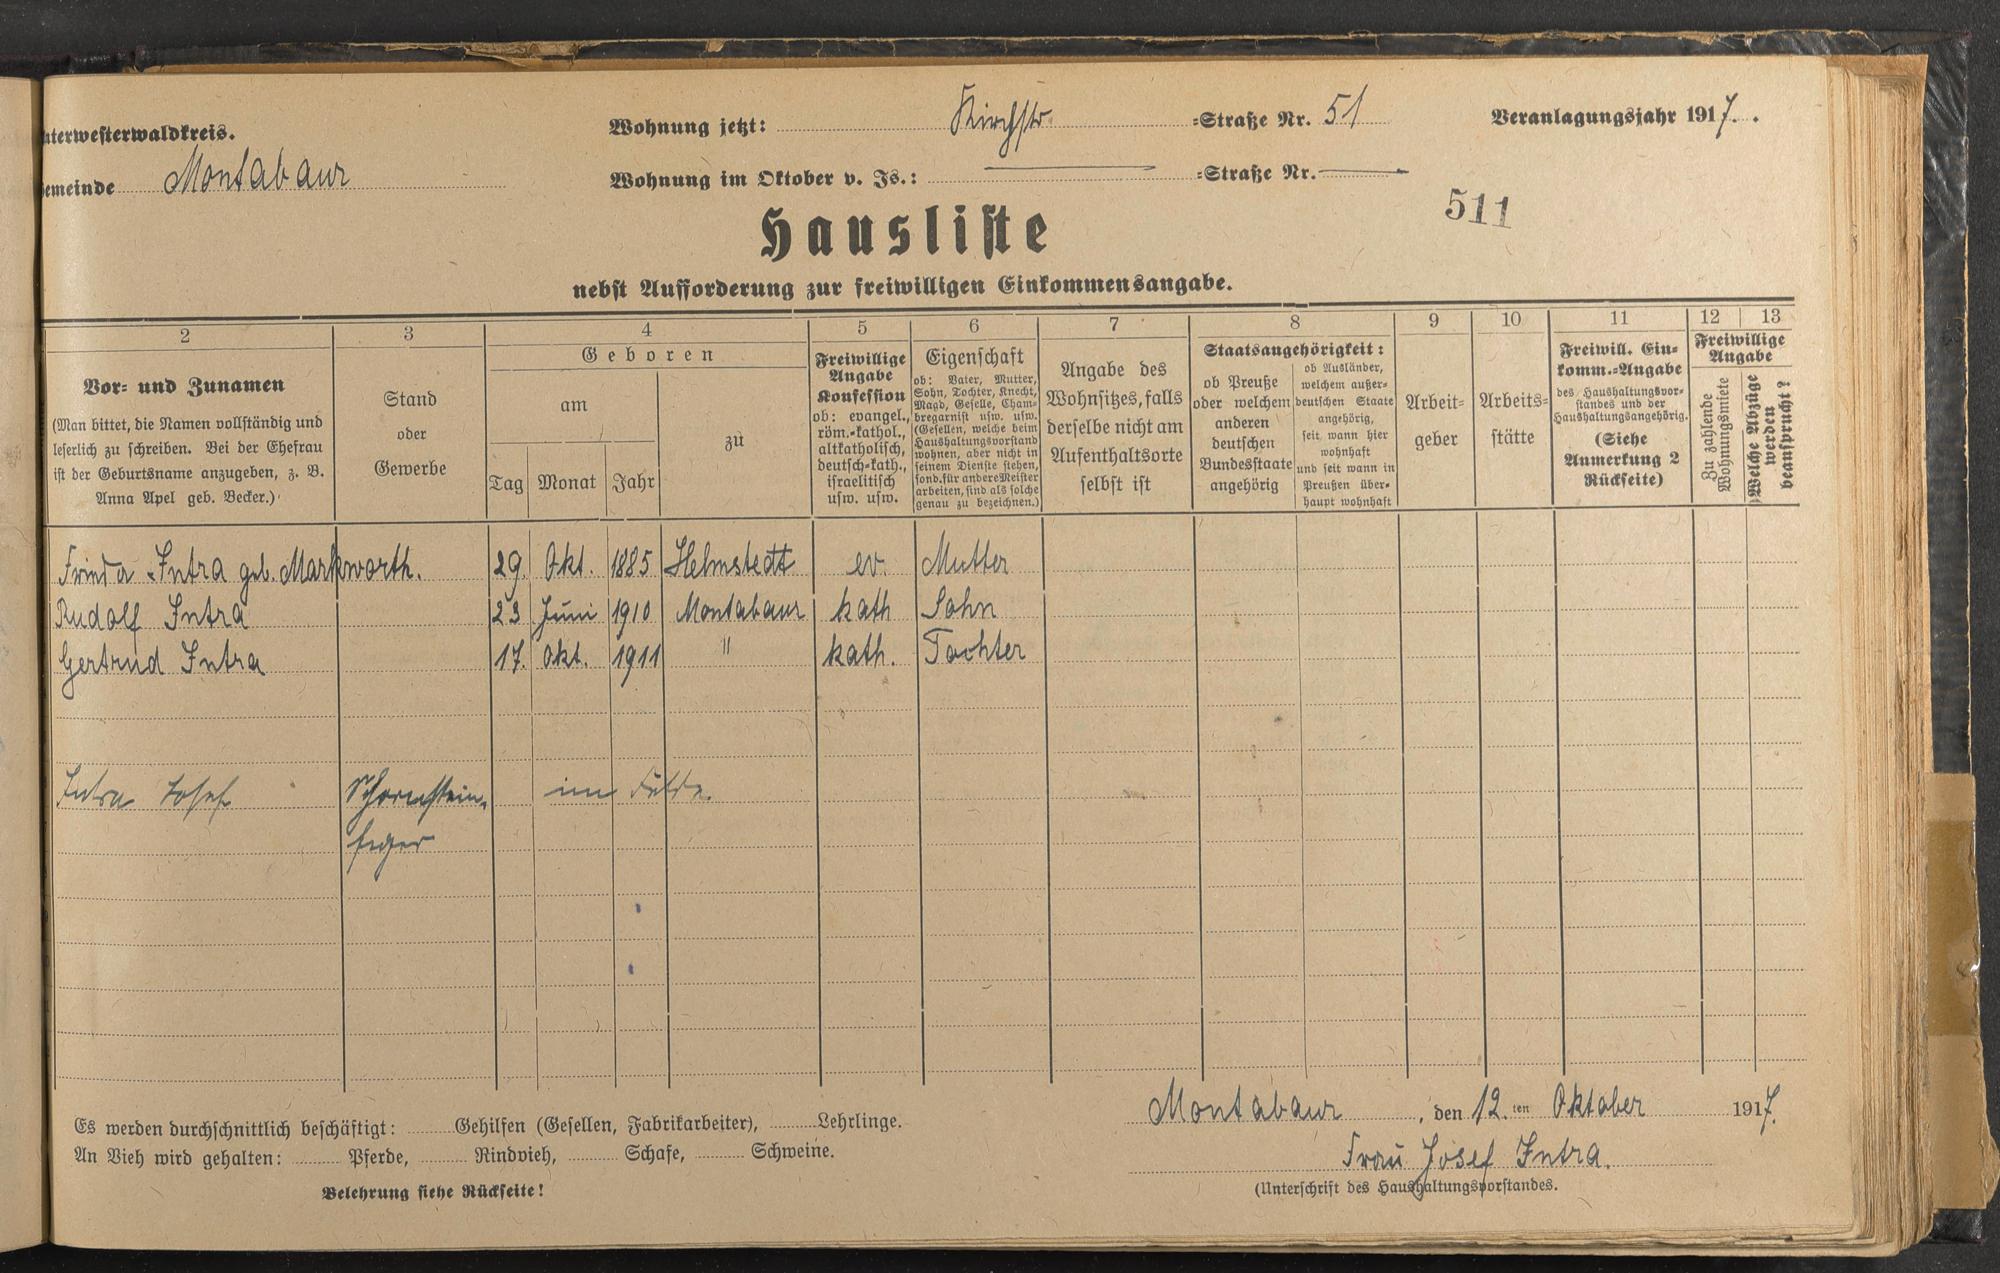 nterwesterwaldkreis.
emeinde Montabaur
Wohnung jetzt: Kirchstr. =Straße Nr. 51
Wohnung im Oktober v. Js.: =Straße Nr.
Veranlagungsjahr 1917.
511
Hausliste
nebst Aufforderung zur freiwilligen Einkommensangabe.
2 3 4 5 6 7 8 9 10 11 12 13
Vor- und Zunamen
(Man bittet, die Namen vollständig und
leserlich zu schreiben. Bei der Ehefrau
ist der Geburtsname anzugeben, z. B.
Anna Apel geb. Becker.)
Stand
oder
Gewerbe
Geboren
am
Tag Monat Jahr
zu
Freiwillige
Angabe
Konfession
ob: evangel.,
röm.-kathol.,
altkatholisch,
deutsch-kath.,
israelitisch
usw. usw.
Eigenschaft
ob: Vater, Mutter,
Sohn, Tochter, Knecht,
Magd, Geselle, Cham-
bregarnist usw. usw.
(Gesellen, welche beim
Haushaltungsvorstand
wohnen, aber nicht in
seinem Dienste stehen,
sond. für andere Meister
arbeiten, sind als solche
genau zu bezeichnen.)
Angabe des
Wohnsitzes, falls
derselbe nicht am
Aufenthaltsorte
selbst ist
Staatsangehörigkeit:
ob Preuße
oder welchem
anderen
deutschen
Bundesstaate
angehörig
ob Ausländer,
welchem außer-
deutschen Staate
angehörig,
seit wann hier
wohnhaft
und seit wann in
Preußen über-
haupt wohnhaft
Arbeit-
geber
Arbeits-
stätte
Freiwill. Ein-
komm.-Angabe
des Haushaltungsvor-
standes und der
Haushaltungsangehörig.
(Siehe
Anmerkung 2
Rückseite)
Freiwillige
Angabe
Zu zahlende
Wohnungsmiete
Welche Abzüge
werden
beansprucht?
Frieda Intra geb. Markworth. 29. Okt. 1885 Helmstedt ev. Mutter
Rudolf Intra 23 Juni 1910 Montabaur kath Sohn
Gertrud Intra 17. Okt. 1911 " kath. Tochter
Intra Josef Schornstein- im Felde.
feger
Es werden durchschnittlich beschäftigt: Gehilfen (Gesellen, Fabrikarbeiter), Lehrlinge.
An Vieh wird gehalten: Pferde, Rindvieh, Schafe, Schweine.
Belehrung siehe Rückseite!
Montabaur, den 12. ten Oktober 1917.
Frau Josef Intra.
(Unterschrift des Haushaltungsvorstandes.